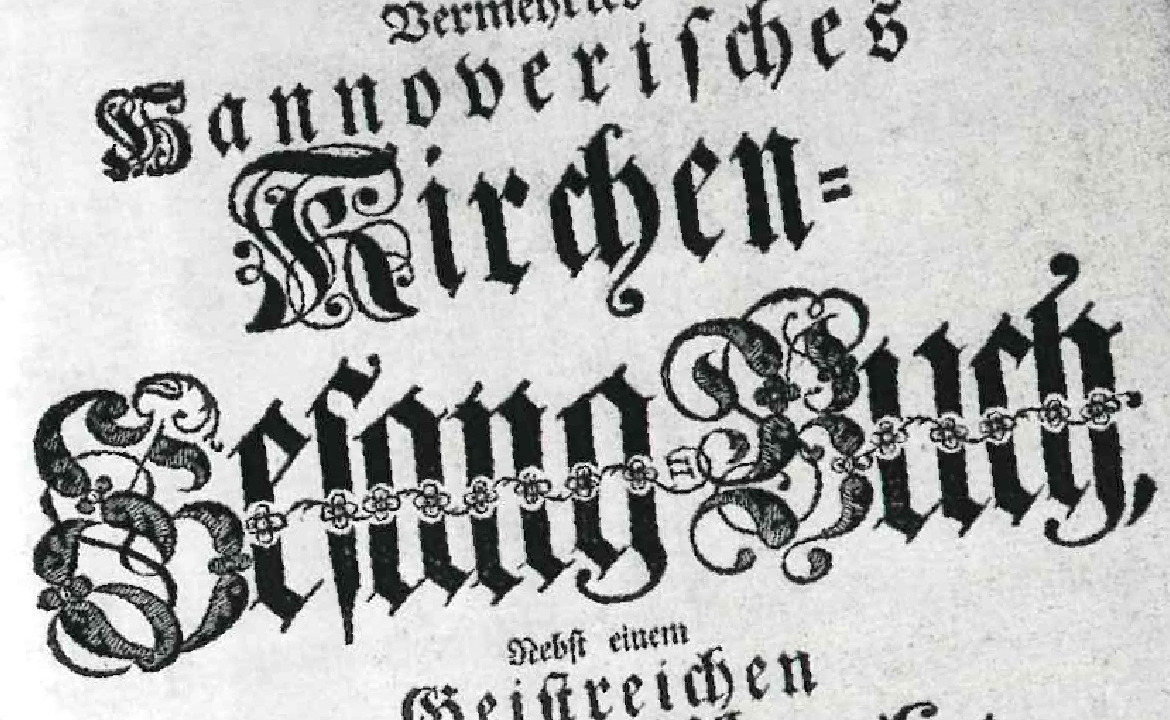 Vermehrtes
Hannoverisches
Kirchen=
Gesang Buch,
Nebst einem
Geistreichen